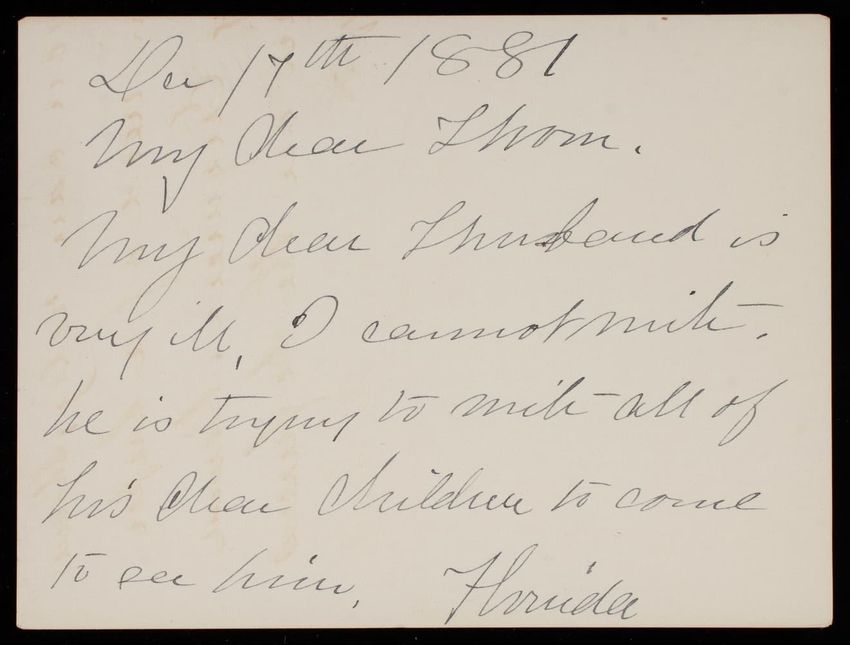 Dec 17th 1881
My dear Thom.
My dear Husband is
very ill, I cannot write.
he is trying to write all of
his dear children to come
to see him. Florida